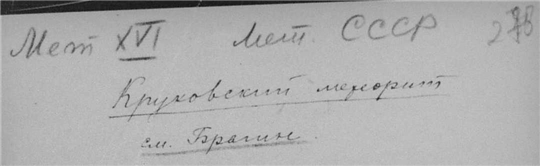 Мет XVI Мет. СССР 278
Круковский метеорит
см. Брагин.